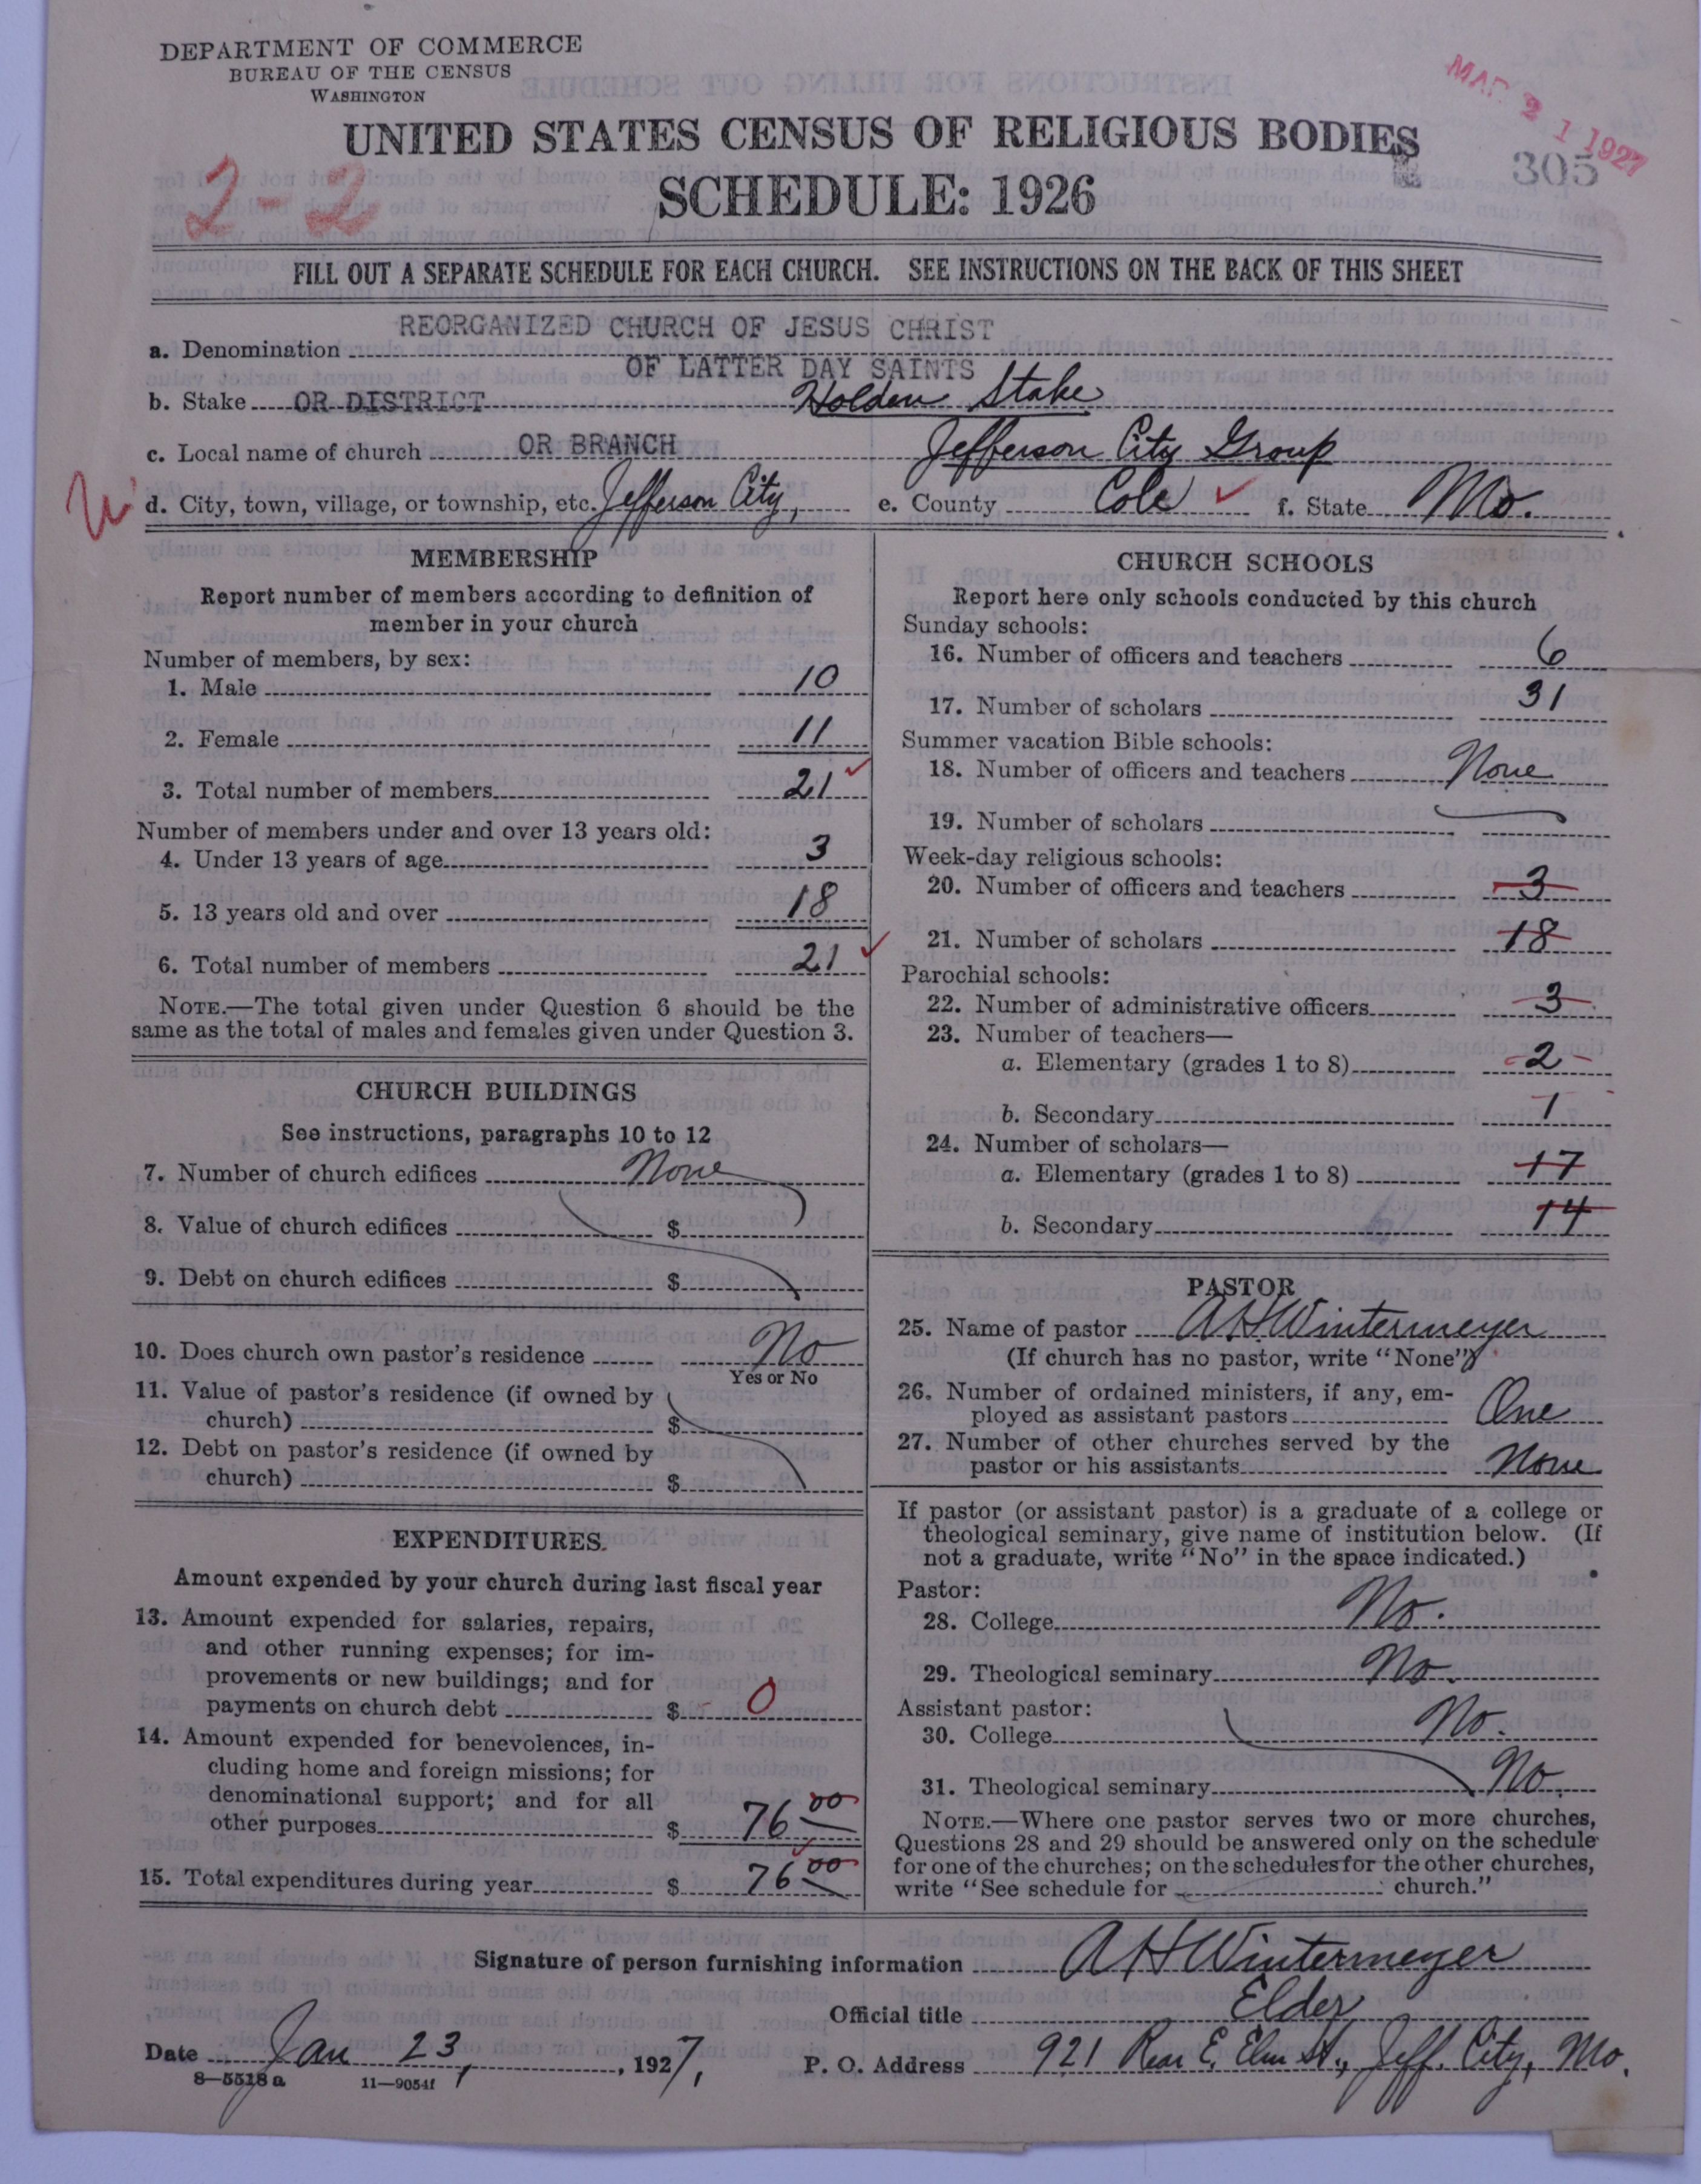 DEPARTMENT OF COMMERCE
BUREAU OF THE CENSUS
WASHINGTON
MAR 21 1927
UNITED STATES CENSUS OF RELIGIOUS BODIES
305
2-2
SCHEDULE: 1926
FILL OUT A SEPARATE SCHEDULE FOR EACH CHURCH. SEE INSTRUCTIONS ON THE BACK OF THIS SHEET
REORGANIZED CHURCH OF JESUS CHRIST
a. Denomination
OF LATTER DAY SAINTS
b. Stake OR DISTRICT Holden Stake
c. Local name of church OR BRANCH Jefferson City Group
d. City, town, village, or township, etc. Jefferson City, e. County Cole ✓ f. State Mo.
MEMBERSHIP
Report number of members according to definition of
member in your church
Number of members, by sex:
1. Male 10
2. Female 11
3. Total number of members 21 ✓
Number of members under and over 13 years old:
4. Under 13 years of age 3
5. 13 years old and over 18
6. Total number of members 21 ✓
NOTE.—The total given under Question 6 should be the
same as the total of males and females given under Question 3.
CHURCH BUILDINGS
See instructions, paragraphs 10 to 12
7. Number of church edifices None
8. Value of church edifices $
9. Debt on church edifices $
10. Does church own pastor's residence No
Yes or No
11. Value of pastor's residence (if owned by
church) $
12. Debt on pastor's residence (if owned by
church) $
EXPENDITURES
Amount expended by your church during last fiscal year
13. Amount expended for salaries, repairs,
and other running expenses; for im-
provements or new buildings; and for
payments on church debt $ 0
14. Amount expended for benevolences, in-
cluding home and foreign missions; for
denominational support; and for all
other purposes $ 76 00
15. Total expenditures during year $ 76 00
CHURCH SCHOOLS
Report here only schools conducted by this church
Sunday schools:
16. Number of officers and teachers 6
17. Number of scholars 31
Summer vacation Bible schools:
18. Number of officers and teachers None
19. Number of scholars
Week-day religious schools:
20. Number of officers and teachers 3
21. Number of scholars 18
Parochial schools:
22. Number of administrative officers 3
23. Number of teachers—
a. Elementary (grades 1 to 8) 2
b. Secondary 1
24. Number of scholars—
a. Elementary (grades 1 to 8) 17
b. Secondary 14
PASTOR
25. Name of pastor A H Wintermeyer
(If church has no pastor, write "None")
26. Number of ordained ministers, if any, em-
ployed as assistant pastors One
27. Number of other churches served by the
pastor or his assistants None
If pastor (or assistant pastor) is a graduate of a college or
theological seminary, give name of institution below. (If
not a graduate, write "No" in the space indicated.)
Pastor:
28. College No.
29. Theological seminary No.
Assistant pastor:
30. College No.
31. Theological seminary No.
NOTE.—Where one pastor serves two or more churches,
Questions 28 and 29 should be answered only on the schedule
for one of the churches; on the schedules for the other churches,
write "See schedule for church."
Signature of person furnishing information A H Wintermeyer
Official title Elder
Date Jan 23, 1927,
P. O. Address 921 Rear E. Elm St., Jeff. City, Mo.
8—5518 a 11—9054f